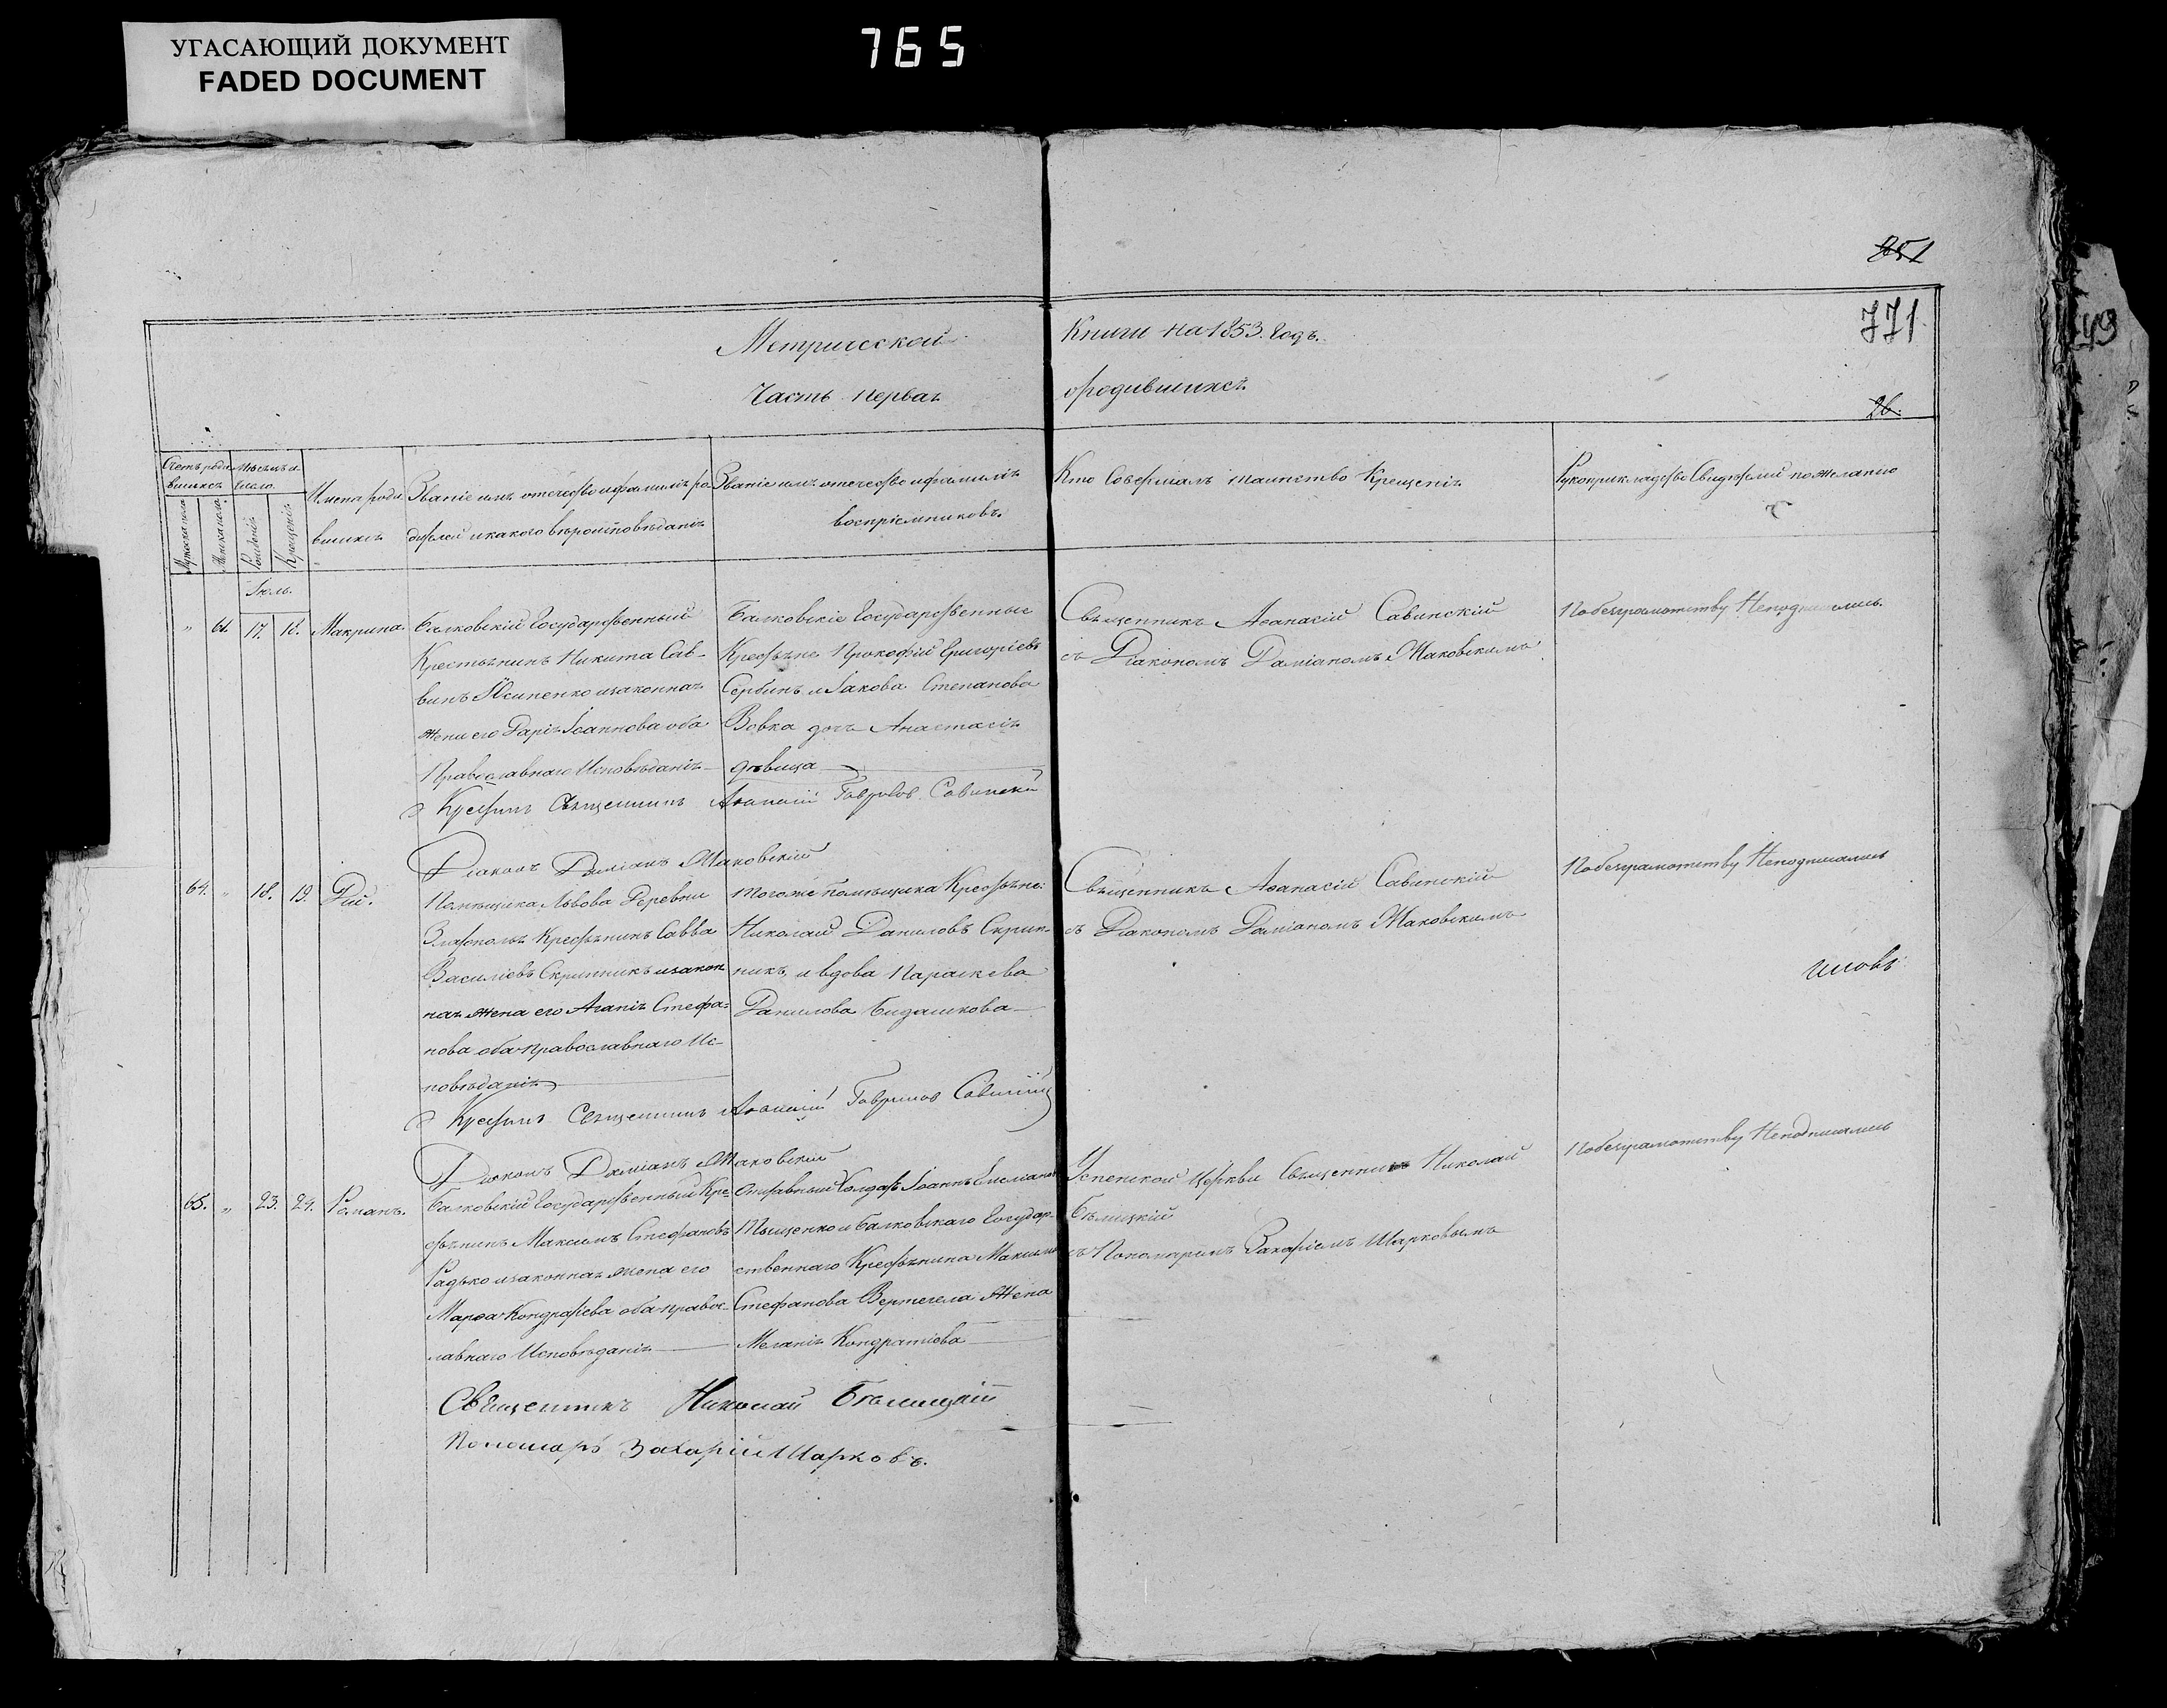 УГАСАЮЩИЙ ДОКУМЕНТ
FADED DOCUMENT
765
851
771
Метрической Книги на 1853. Годъ.
Часть первая о родившихся
26.
Счетъ роди- Мѣсяцъ и
вшихся число.
Мужеска пола Женска пола Рожденія Крещенія
Имена роди
вшихся
Званіе имя отечество и фамилія ро-
дителей и какого вѣроисповѣданія
Званіе имя отечество и фамилія
воспріемниковъ.
Кто Совершалъ таинство Крещенія
Рукоприкладство Свидѣтелей по желанію
Іюль.
" 61. 17. 18. Макрина.
Балковскій Государственный
Крестьянинъ Никита Сав-
винъ Ясипенко и законная
жена его Дарія Іоаннова оба
Православнаго Исповѣданія
Балковскіе Государственные
Крестьяне Прокофій Григоріевъ
Сербинъ и Іакова Степанова
Вовка дочь Анастасія
дѣвица
Священникъ Аѳанасій Савинскій
съ Діакономъ Даміаномъ Маковскимъ
По безграмотству Неподписались
Крестилъ Священникъ Аѳанасій Гавриловъ Савинскій
Діаконъ Даміанъ Маковскій
64. " 18. 19. Дій.
Помѣщика Львова Деревни
Златополя Крестьянинъ Савва
Василіевъ Скрипникъ и закон
ная жена его Агапія Стефа-
нова оба православнаго Ис-
повѣданія
Тогоже помѣщика Крестьяне:
Николай Даниловъ Скрип-
никъ, и вдова Параскева
Данилова Бидашкова
Священникъ Аѳанасій Савинскій
съ Діакономъ Даміаномъ Маковскимъ
По безграмотству Неподписались
Крестилъ Священникъ Аѳанасій Гавриловъ Савинскій
Діаконъ Даміанъ Маковскій
65. " 23. 24. Романъ.
Балковскій Государственный Кре-
стьянинъ Максимъ Стефановъ
Радько и законная жена его
Марѳа Кондратіева оба правос-
лавнаго Исповѣданія
Отставный Солдатъ Іоаннъ
Тищенко и Балковскаго Государ-
ственнаго Крестьянина Максима
Стефанова Вертегела Жена
Меланія Кондратіева
Успенской Церкви Священникъ Николай
Бѣлицкій
съ Пономаремъ Захаріемъ Шарковымъ
По безграмотству Неподписались
Священникъ Николай Бѣлицкій
Пономарь Захарій Шарковъ.